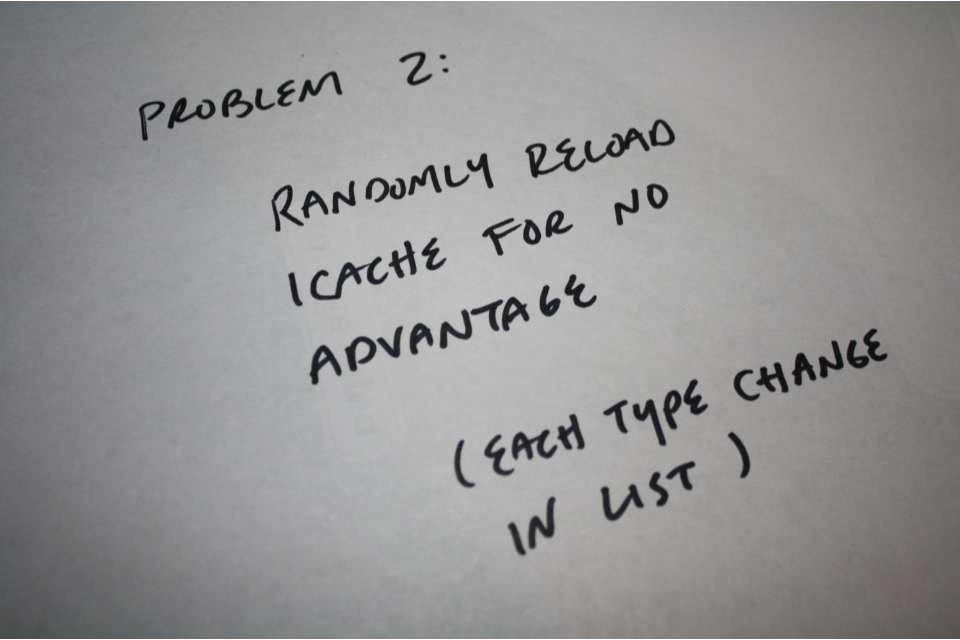 PROBLEM 2:
RANDOMLY RELOAD
ICACHE FOR NO
ADVANTAGE
(EACH TYPE CHANGE
IN LIST)